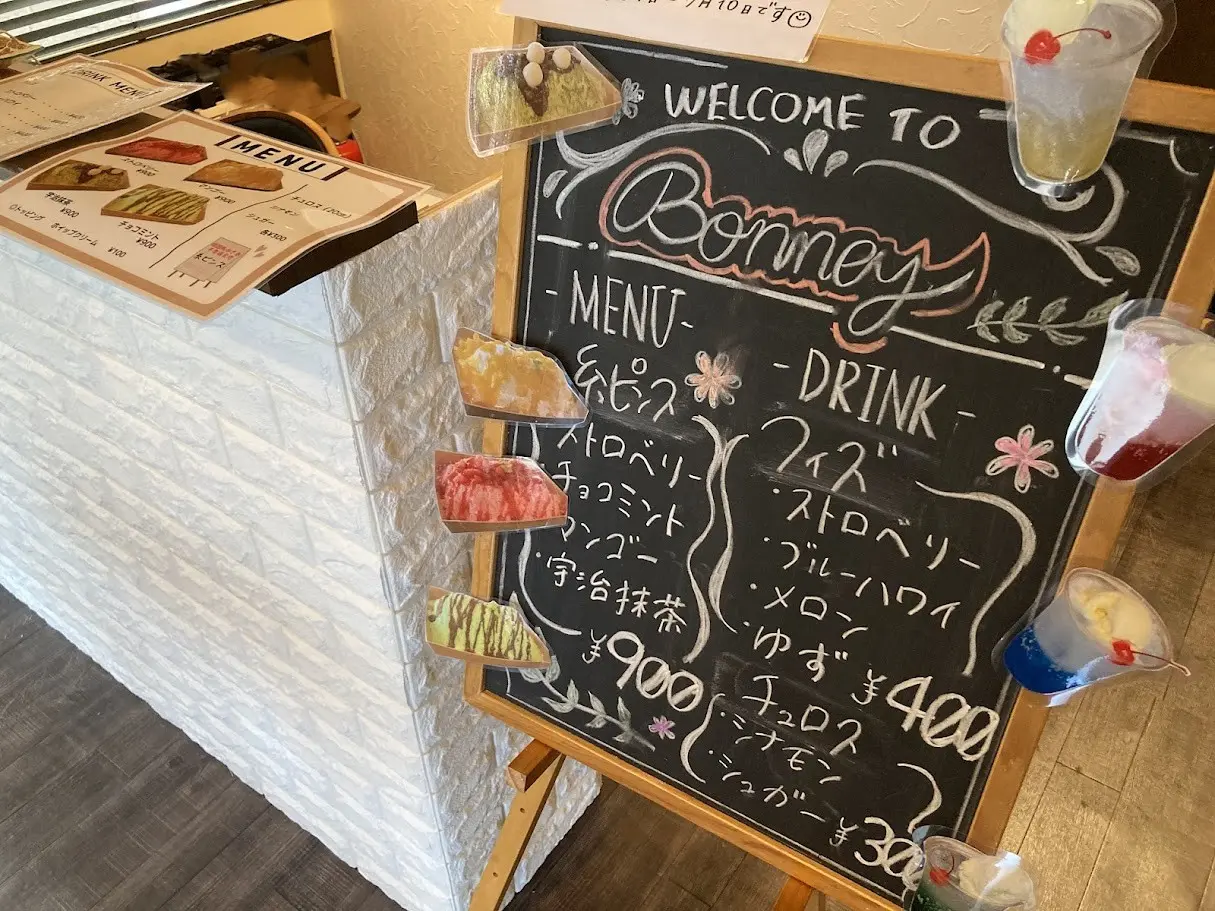 月10日です☺
DRINK MENU
MENU
ストロベリー
¥900
マンゴー
¥900
宇治抹茶
¥900
チョコミント
¥900
◎トッピング
ホイップクリーム
¥100
チュロス(20㎝)
シナモン
シュガー
各¥300
糸ピンス
WELCOME TO
Bonney
-MENU-
糸ピンス
ストロベリー
チョコミント
マンゴー
・宇治抹茶
¥900
-DRINK-
フィズ
・ストロベリー
・ブルーハワイ
・メロン
・ゆず
¥400
チュロス
・シナモン
・シュガー
¥300